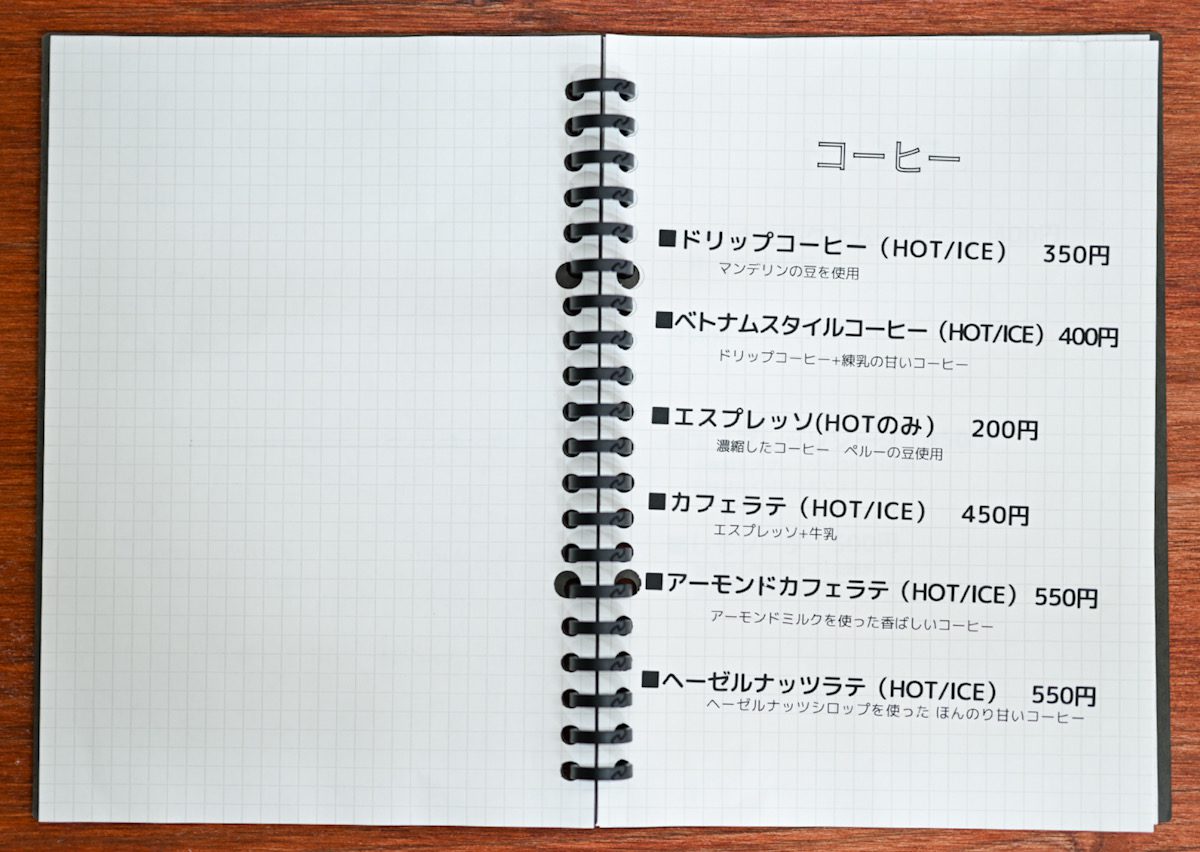 コーヒー
■ドリップコーヒー（HOT/ICE） 350円
マンデリンの豆を使用
■ベトナムスタイルコーヒー（HOT/ICE）400円
ドリップコーヒー+練乳の甘いコーヒー
■エスプレッソ(HOTのみ） 200円
濃縮したコーヒー　ペルーの豆使用
■カフェラテ（HOT/ICE） 450円
エスプレッソ+牛乳
■アーモンドカフェラテ（HOT/ICE） 550円
アーモンドミルクを使った香ばしいコーヒー
■ヘーゼルナッツラテ（HOT/ICE） 550円
ヘーゼルナッツシロップを使った ほんのり甘いコーヒー